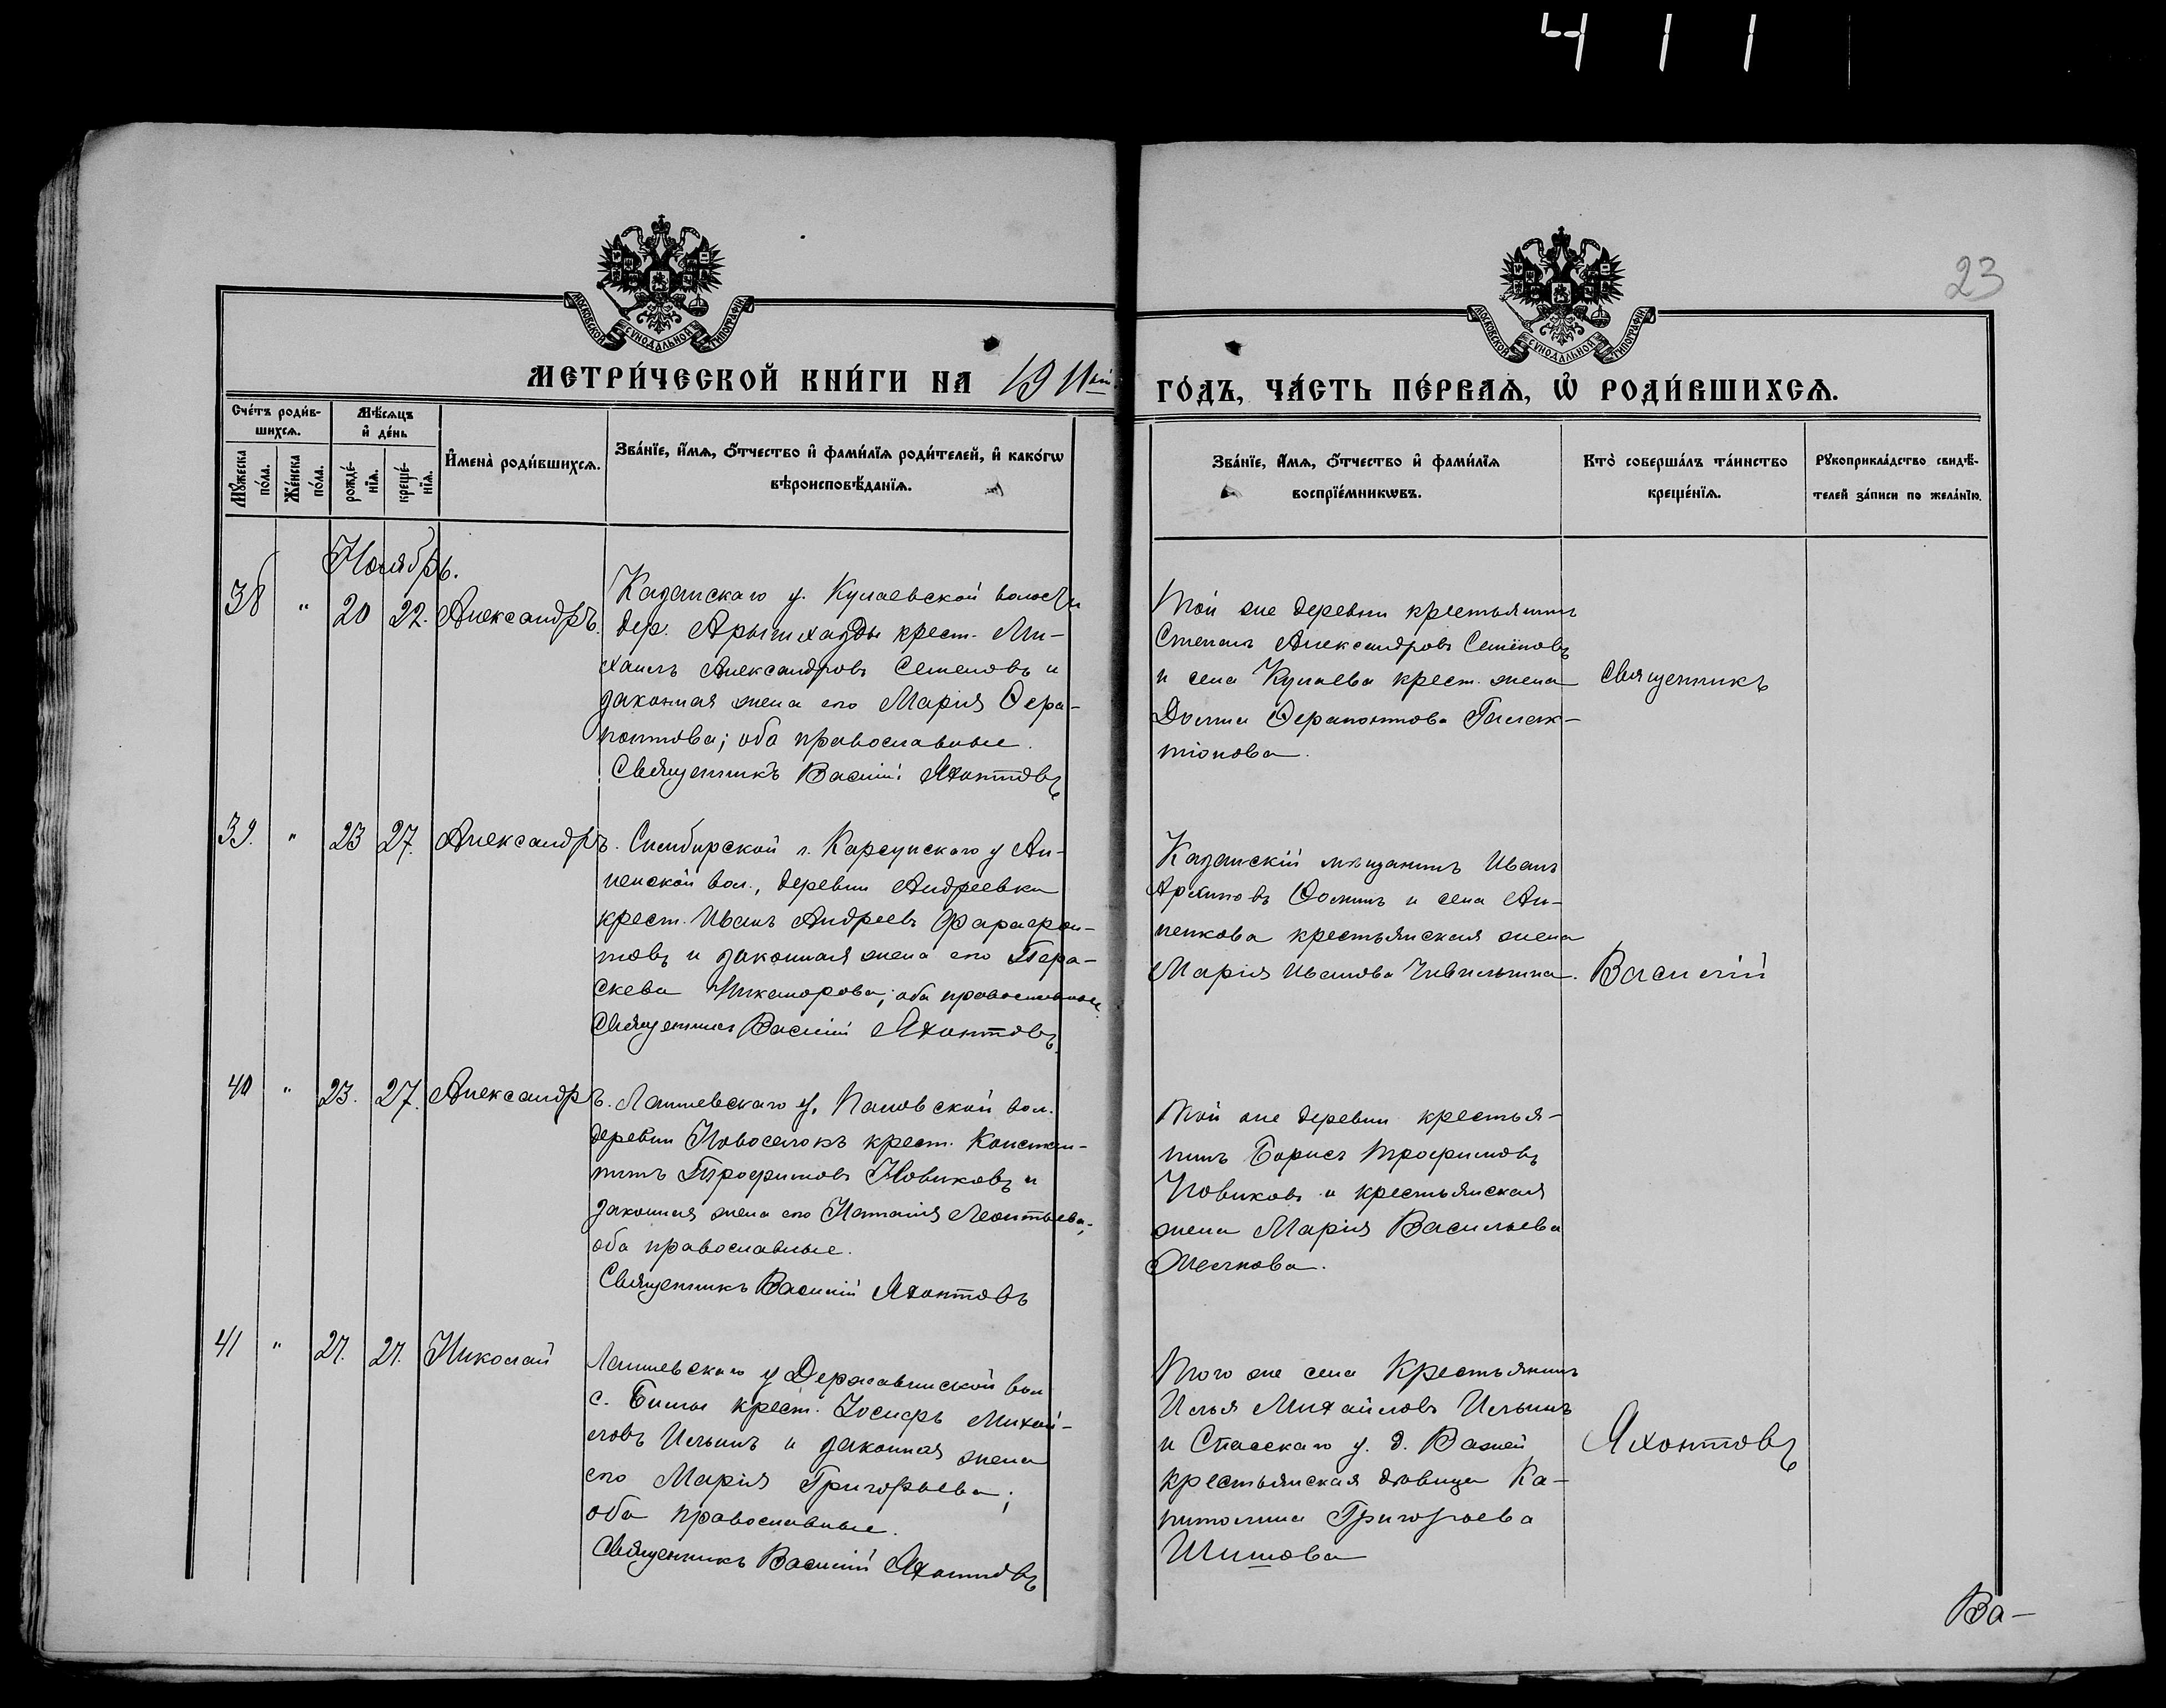 4 1 1
23
МОСКОВСКОЙ СУНОДАЛЬНОЙ ТИПОГРАФІИ
МОСКОВСКОЙ СУНОДАЛЬНОЙ ТИПОГРАФІИ
МЕТРИ́ЧЕСКОЙ КНИ́ГИ НА 1911ый ГО́ДЪ, ЧА́СТЬ ПЕ́РВАѦ, Ѡ҆ РОДИ́ВШИХСѦ.
Сче́тъ роди́в-
шихсѧ.
Мѣ́сѧцъ
и҆ де́нь
Мꙋ́жеска
по́ла.
Же́нска
по́ла.
рожде́-
нїѧ.
креще́-
нїѧ.
И҆мена̀ роди́вшихсѧ.
Зва́нїе, и҆́мѧ, ѻ҆́тчество и҆ фами́лїѧ роди́телей, и҆ како́гѡ
вѣроисповѣ́данїѧ.
Зва́нїе, и҆́мѧ, ѻ҆́тчество и҆ фами́лїѧ
воспрїе́мникѡвъ.
Кто̀ соверша́лъ та́инство
креще́нїѧ.
Рꙋкоприкла́дство свидѣ́-
телей за́писи по жела́нїю.
Ноябрь.
38 " 20 22. Александръ.
Казанскаго у. Кулаевской волости
дер. Арышхазды крест. Ми-
хаилъ Александровъ Семеновъ и
законная жена его Марія Ѳера-
понтова; оба православные.
Священникъ Василій Яхонтовъ
Той же деревни крестьянинъ
Степанъ Александровъ Семёновъ
и села Кулаева крест. жена
Домна Ѳерапонтова Галак-
тіонова.
Священникъ
39. " 23 27. Александръ.
Симбирской г. Карсунскаго у Ан-
ненской вол., деревни Андреевки
крест. Иванъ Андреевъ Фарафон-
товъ и законная жена его Пара-
скева Никанорова; оба православные
Священникъ Василій Яхонтовъ.
Казанскій мѣщанинъ Иванъ
Архиповъ Ѳоминъ и села Ан-
ненкова крестьянская жена
Марія Иванова Чивильгина.
Василій
40 " 23. 27. Александръ.
Лаишевскаго у. Пановской вол.
деревни Новоселокъ крест. Констан-
тинъ Трофимовъ Новиковъ и
законная жена его Наталія Леонтьева;
оба православные.
Священникъ Василій Яхонтовъ
Той же деревни крестья-
нинъ Борисъ Трофимовъ
Новиковъ и крестьянская
жена Марія Васильева
41 " 27. 27. Николай
Лаишевскаго у Державинской вол
с. Бимы крест. Іосифъ Михай-
ловъ Ильинъ и законная жена
его Марія Григорьева;
оба православные.
Священникъ Василій Яхонтовъ
Того же села Крестьянинъ
Илья Михайловъ Ильинъ
и Спасскаго у. д. Важей
крестьянская дѣвица Ка-
питолина Григорьева
Шишова
Яхонтовъ
Ва-